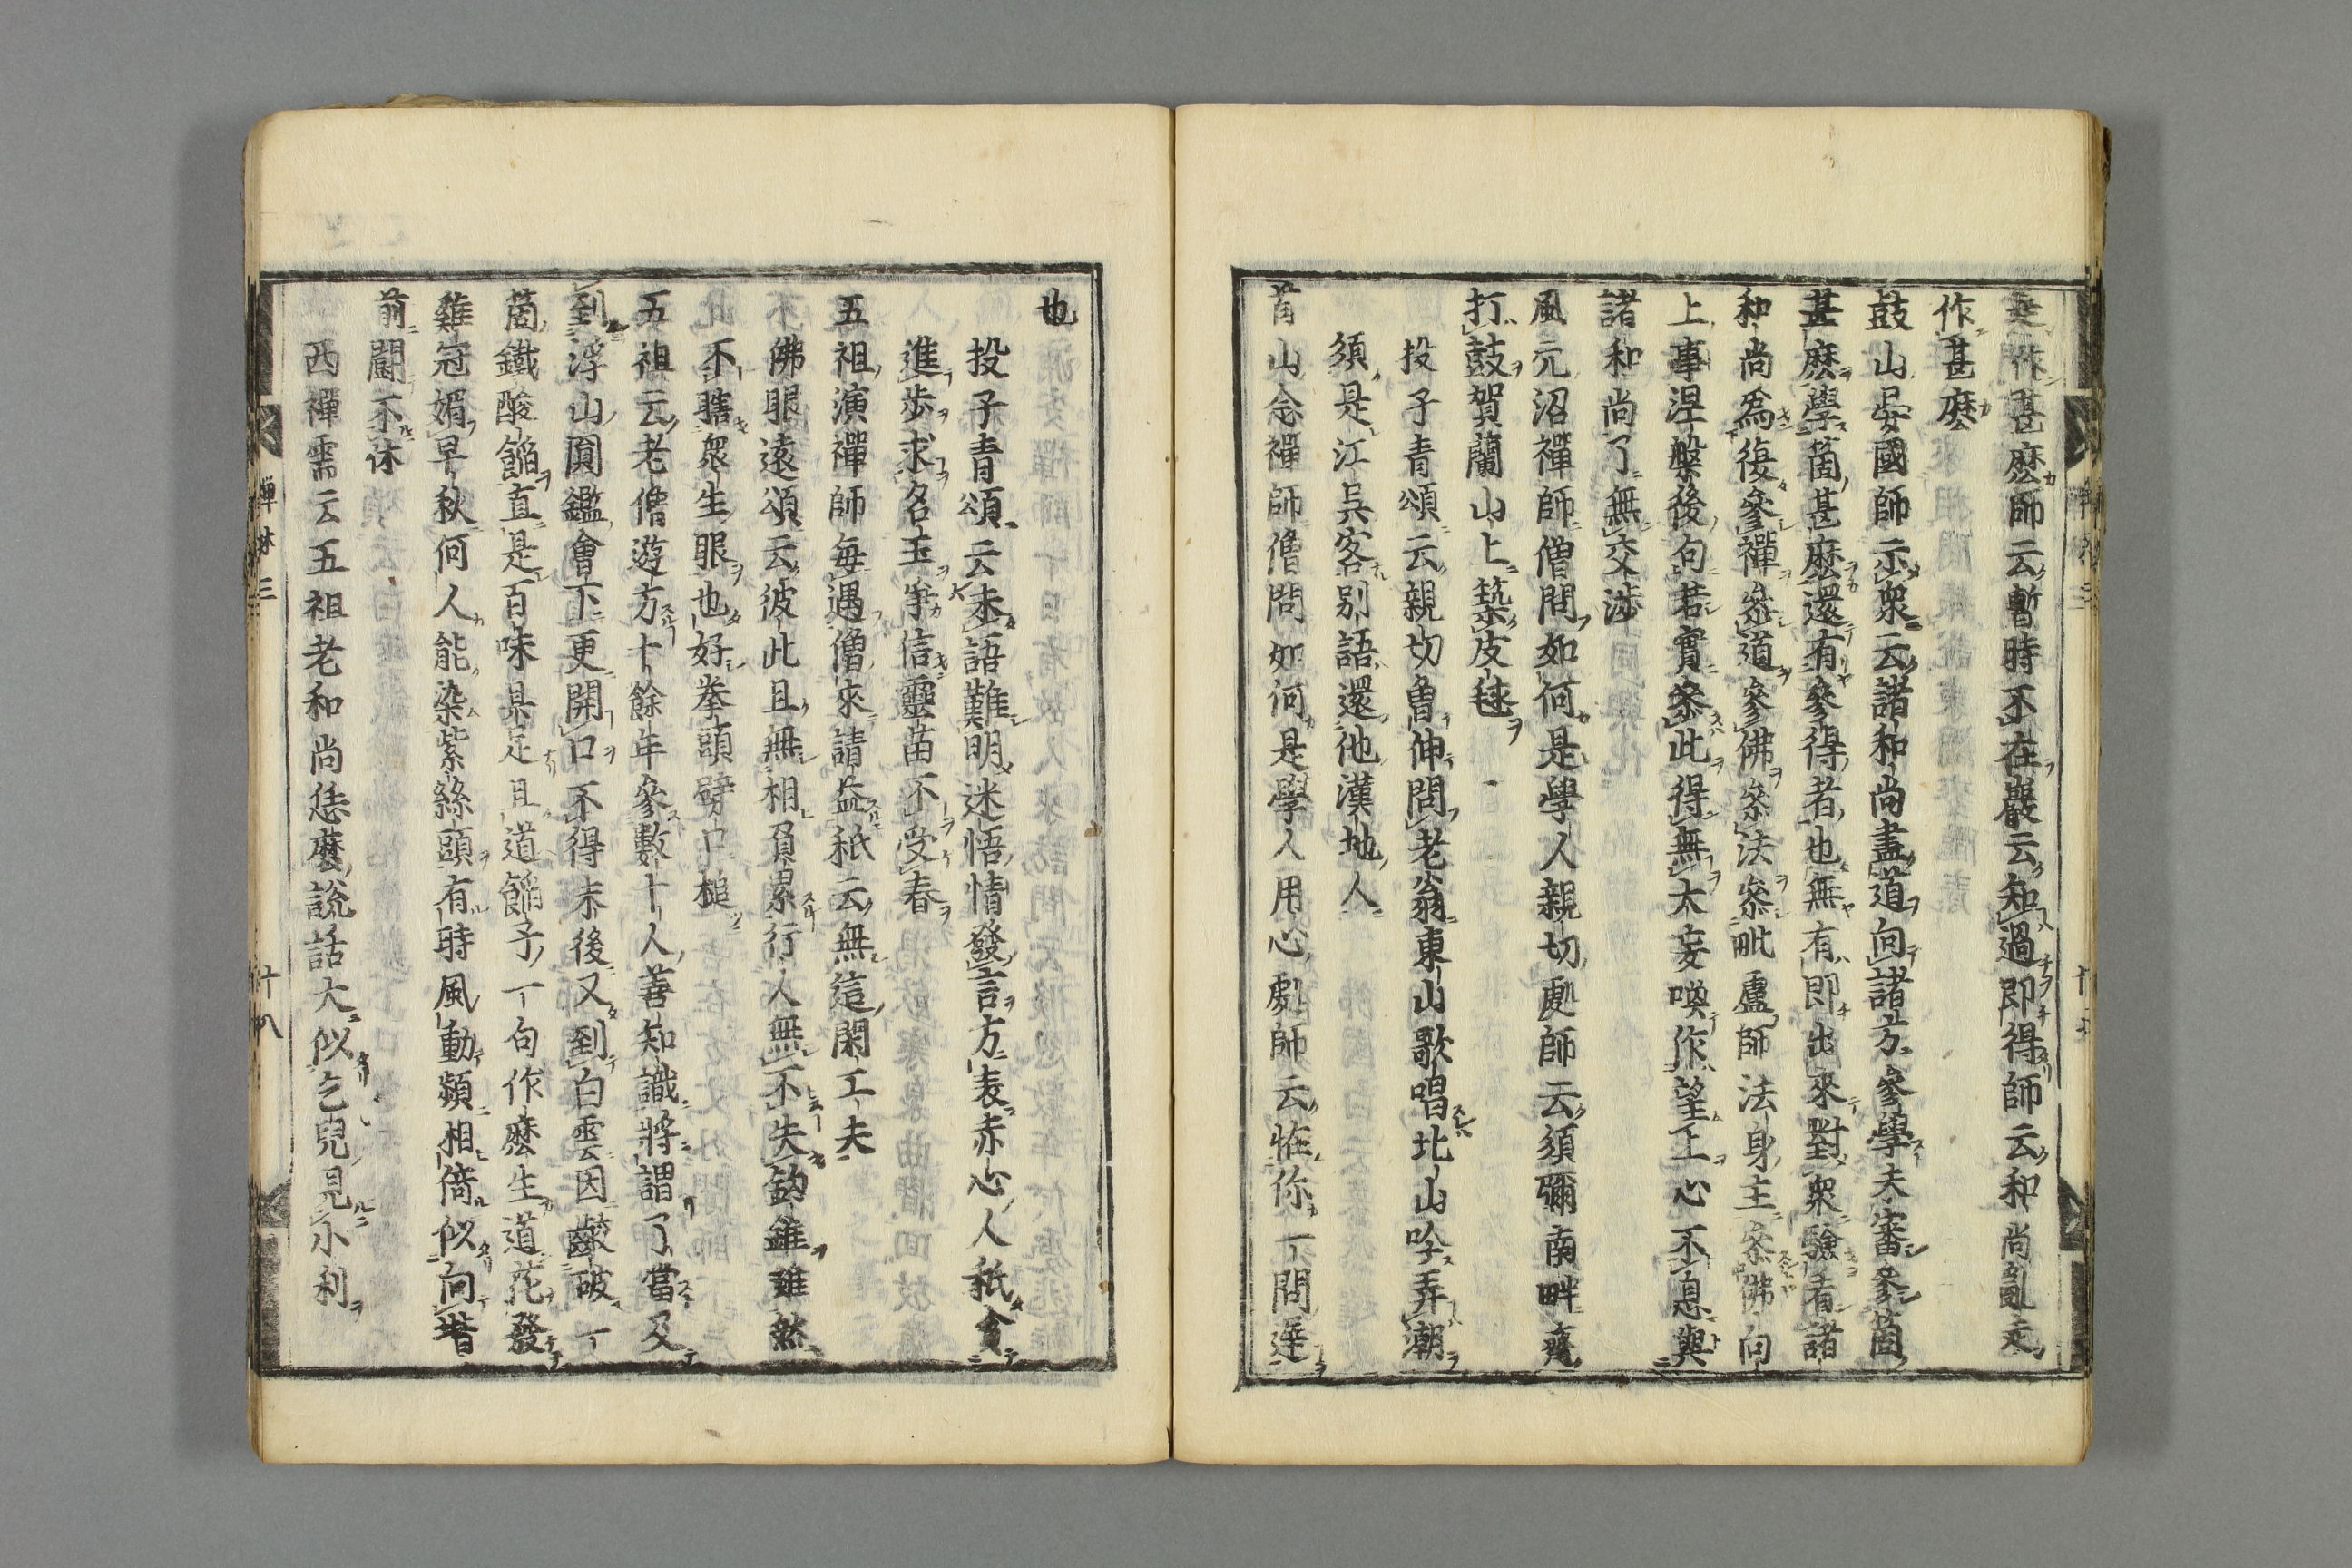 作甚麽師云暫時不在巖云知過即得師云和尚亂走
作甚麽
鼓山晏國師示衆云諸和尚盡道向諸方參學夫審參箇
甚麽學箇甚麽還有參得者也無有即出來對衆驗看諸
和尚爲復參禪叅道參佛叅法叅毗盧師法身主叅佛向
上事涅槃後句若實叅此得無大妄喚作望上心不息與
諸和尚了無交涉
風穴沼禪師僧問如何是學人親切處師云須彌南畔齊
打鼓賀蘭山上築皮毬
投子青頌云親切曾伸問老翁東山歌唱北山吟弄潮
須是江吳客别語還他漢地人
首山念禪師僧問如何是學人用心處師云恠你一問遲
也
投子青頌云未語難明迷悟情發言方表赤心人秖貪
進步求名玉爭信靈苗不受春
五祖演禪師每遇僧來請益秖云無這閑工夫
佛眼遠頌云彼此且無相負累行人無不失鈎錐雖然
不瞎衆生眼也好拳頭劈口槌
五祖云老僧遊方十餘年參數十人善知識將謂了當及
到浮山圓鑑會下更開口不得末後又到白雲因齩破一
箇鐵酸餡直是百味具足且道餡子一句作麽生道花發
雞冠媚早秋何人能染紫絲頭有時風動頻相倚似向堦
前鬪不休
西禪需云五祖老和尚恁麽說話大似乞兒見小利
禪林三
十八